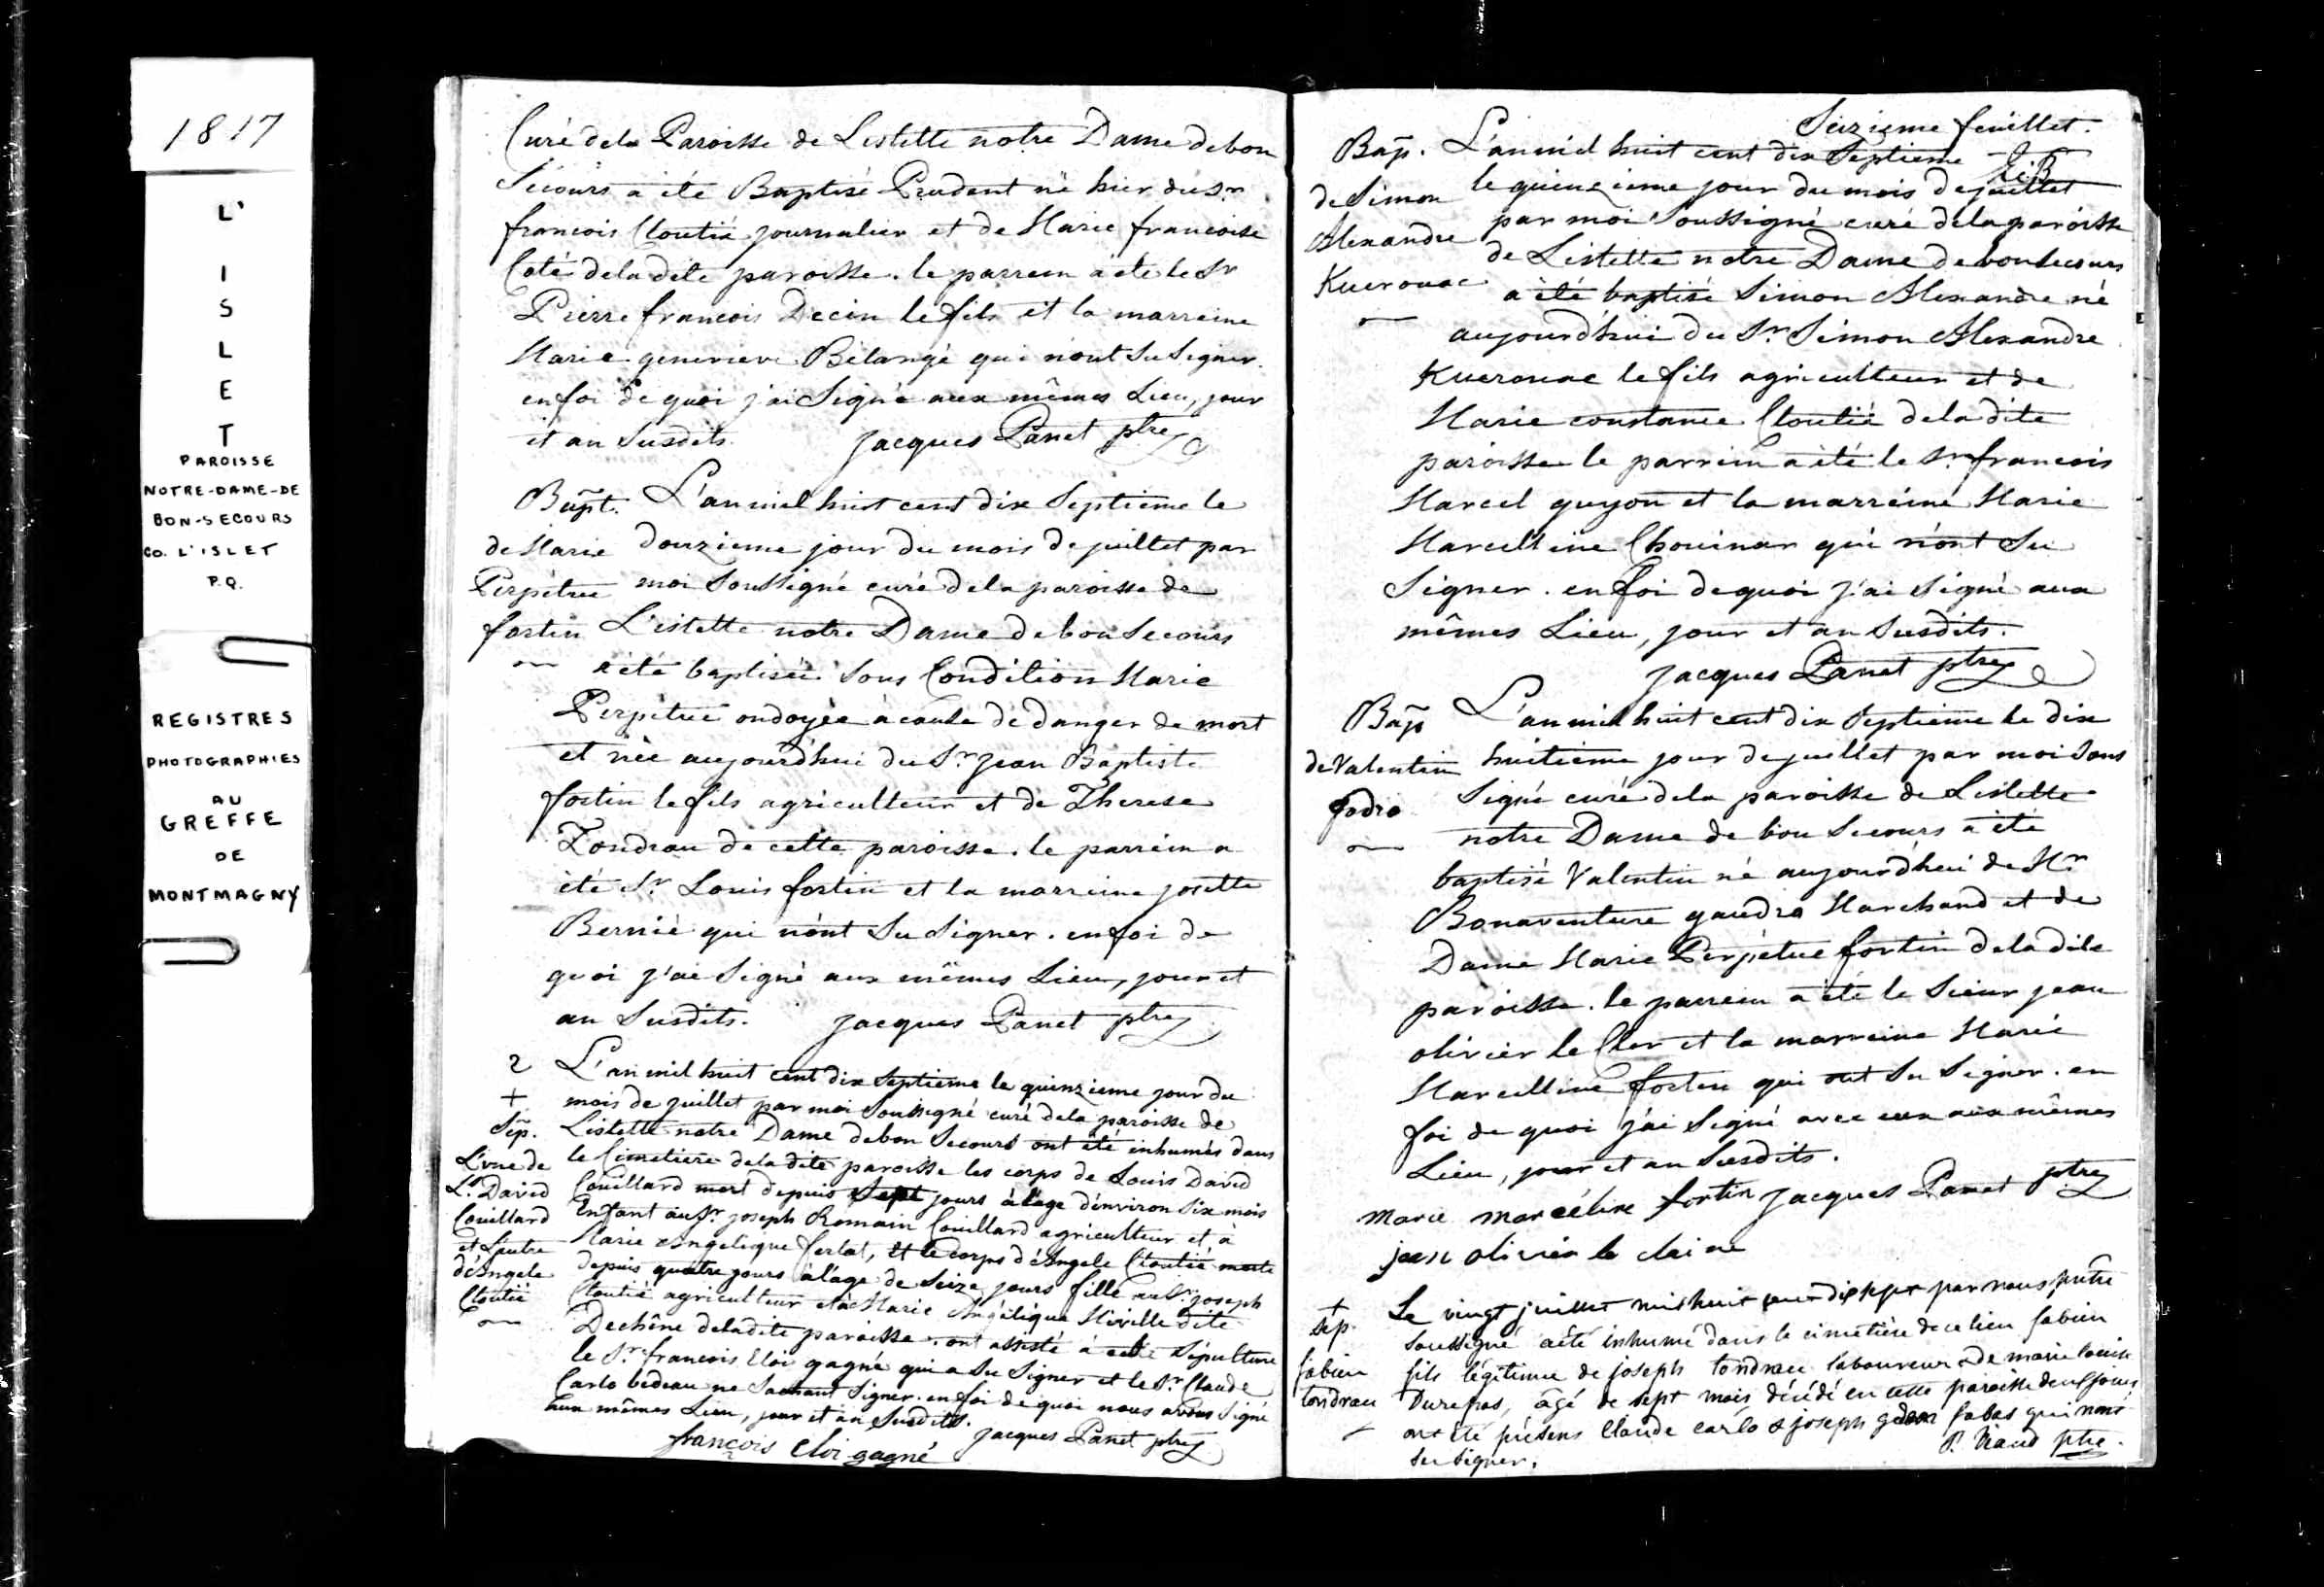 1817
L'
I
S
L
E
T
PAROISSE
NOTRE-DAME-DE
BON-SECOURS
CO. L'ISLET
P.Q.
REGISTRES
PHOTOGRAPHIES
AU
GREFFE
DE
MONTMAGNY
Curé dela Paroisse de Lislette notre Dame de bon
Secours a été Baptisé Prudent né hier du Sr
francois Cloutié journalier et de Marie francoise
Coté dela dite paroisse. le parrein a été le Sr
Pierre francois Decin le fils et la marreine
Marie genevieve Bélangé qui n'ont su signer.
en foi de quoi j'ai Signé aux mêmes Lieu, jour
et an susdits. Jacques Panet ptre
Bapt. L'an mil huit cent dix Septieme le
de Marie douzieme jour du mois de juillet par
Perpétue moi Soussigné curé dela paroisse de
fortin L'islette notre Dame de bon Secours
a été baptisée sous Condition Marie
Perpétue ondoyée à cause de danger de mort
et née aujourd'hui du Sr jean Baptiste
fortin le fils agriculteur et de Therese
Tondrau de cette paroisse. le parrein a
été Sr Louis fortin et la marreine josette
Bernié qui n'ont Su Signer. en foi de
quoi j'ai Signé aux mêmes Lieu, jour et
an Susdits. Jacques Panet ptre
2 L'an mil huit cent dix septieme le quinzieme jour du
+ mois de juillet par moi Soussigné curé dela paroisse de
Sep. Lislette notre Dame de bon Secours ont été inhumés dans
L'une de le Cimetiere dela dite paroisse les corps de Louis David
Ls David Couillard mort depuis Sept jours à l'age d'environ Six mois
Couillard Enfant au Sr joseph Romain Couillard agriculteur et à
et L'autre Marie Angelique fertat, et le corps d'Angele Cloutié morte
d'Angele depuis quatre jours à l'age de Seize jours fille au Sr joseph
Cloutié Cloutié agriculteur et à Marie Angélique Miville dite
Dechêne dela dite paroisse. ont assisté à cette sépulture
le Sr francois Eloi gagné qui a Su Signer et le Sr Claude
Carlo bedeau ne Sachant Signer. en foi de quoi nous avons Signé
aux mêmes Lieu, jour et an Susdits.
francois Eloi gagné Jacques Panet ptre
Seizieme feuillet.
Bap. L'an mil huit cent dix Septieme
de Simon le quinzieme jour du mois de juillet
Alexandre par moi Soussigné curé dela paroisse
de Lislette notre Dame de bon secours
Kuerouac a été baptisé Simon Alexandre né
aujourd'hui du Sr Simon Alexandre
Kuerouac le fils agriculteur et de
Marie constance Cloutié dela dite
paroisse le parrein a été le Sr francois
Marcel guyon et la marreine Marie
Marcelline Chouinar qui n'ont Su
Signer. en foi de quoi j'ai signé aux
mêmes Lieu, jour et an susdits.
Jacques Panet ptre
Bap L'an mil huit cent dix Septieme le dix
de Valentin huitieme jour de juillet par moi Sous
godro Signé curé dela paroisse de Lislette
notre Dame de bon Secours a été
baptisé Valentin né aujourd'hui de Mr
Bonaventure gaudro Marchand et de
Dame Marie Perpétue fortin dela dite
paroisse. le parrein a été le Sieur jean
olivier le Cler et la marreine Marie
Marcelline fortin qui ont Su Signer. en
foi de quoi j'ai Signé avec eux aux mêmes
Lieu, jour et an Susdits.
marie marcéline fortin Jacques Panet ptre
jean olivier le claire
+ Le vingt juillet mil huit cent dix sept par nous prêtre
sep. soussigné a été inhumé dans le cimetière de ce lieu fabien
fabien fils légitime de joseph tondreau laboureur & de marie louise
tondrau Durepos, âgé de sept mois, décédé en cette paroisse deux jours
ont été présens Claude carlo & joseph fabas qui n'ont
su signer. ptre.